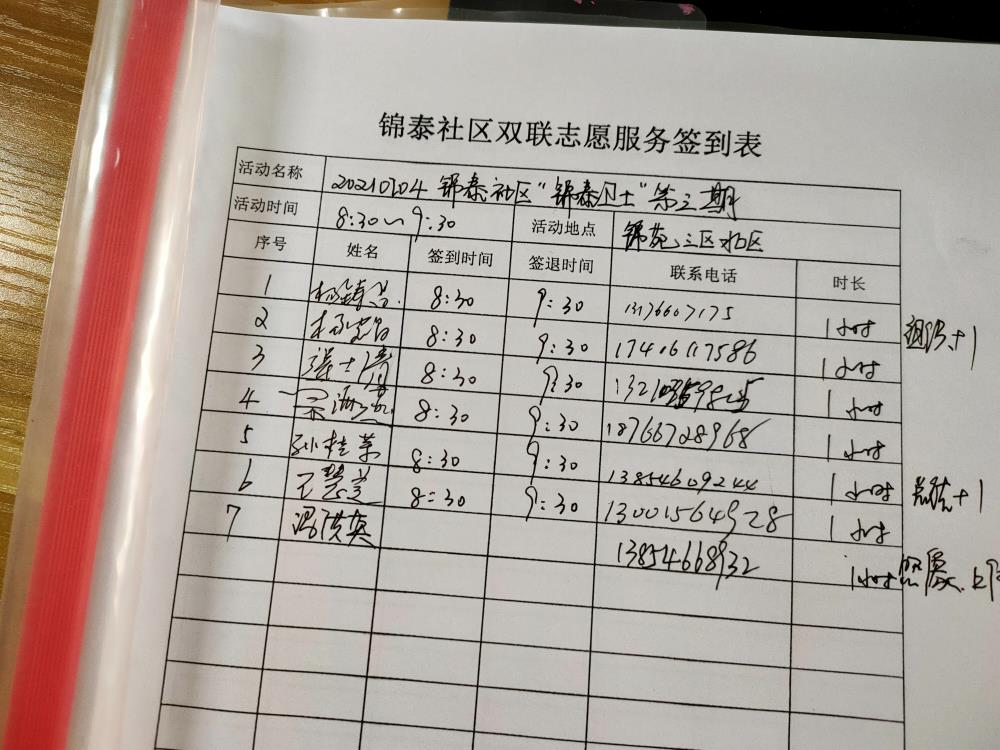 锦泰社区双联志愿服务签到表
活动名称 20210704 锦泰社区"锦泰卫士"第三期
活动时间 8:30~9:30 活动地点 锦苑三区北区
序号 姓名 签到时间 签退时间 联系电话 时长
1 8:30 9:30 13176607175 1小时
2 8:30 9:30 17406117586 1小时 +1
3 8:30 9:30 1小时
4 8:30 9:30 18766728968 1小时
5 孙桂荣 8:30 9:30 13854609244 1小时 +1
6 王慧兰 8:30 9:30 13001564928 1小时
7 冯洪英 13854668932 1小时